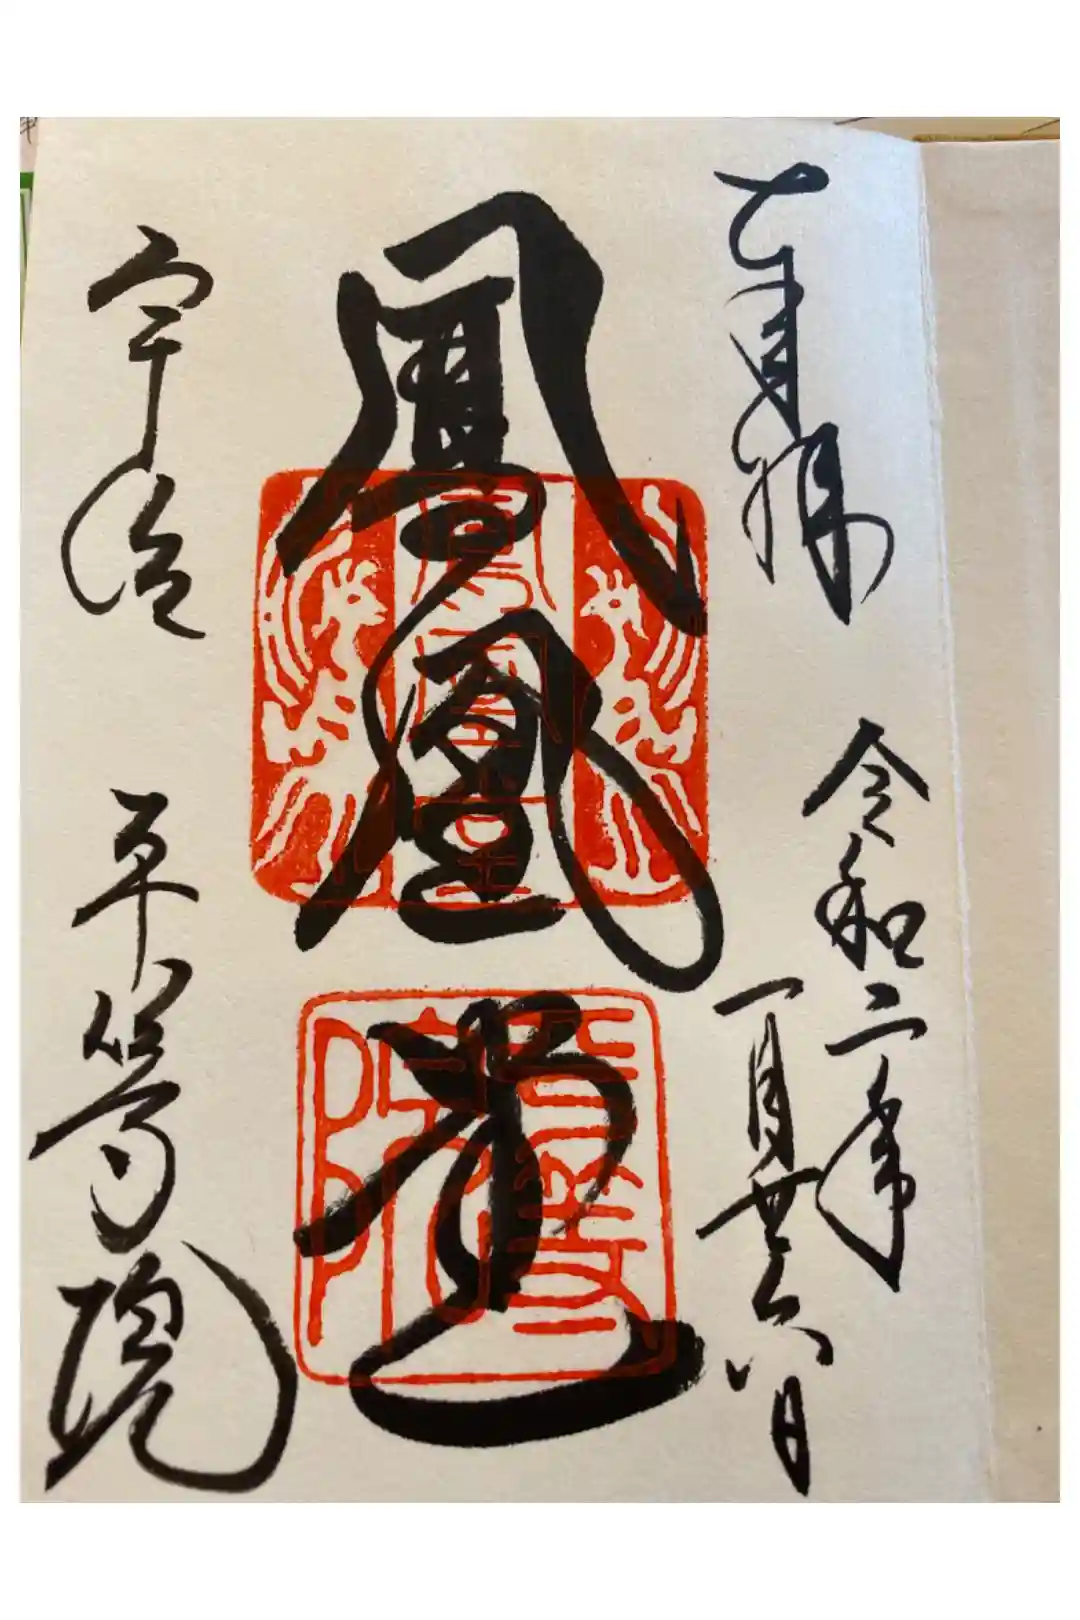 奉拝
令和二年
一月廿六日
鳳凰堂
鳳凰堂
平等院
宇治 平等院